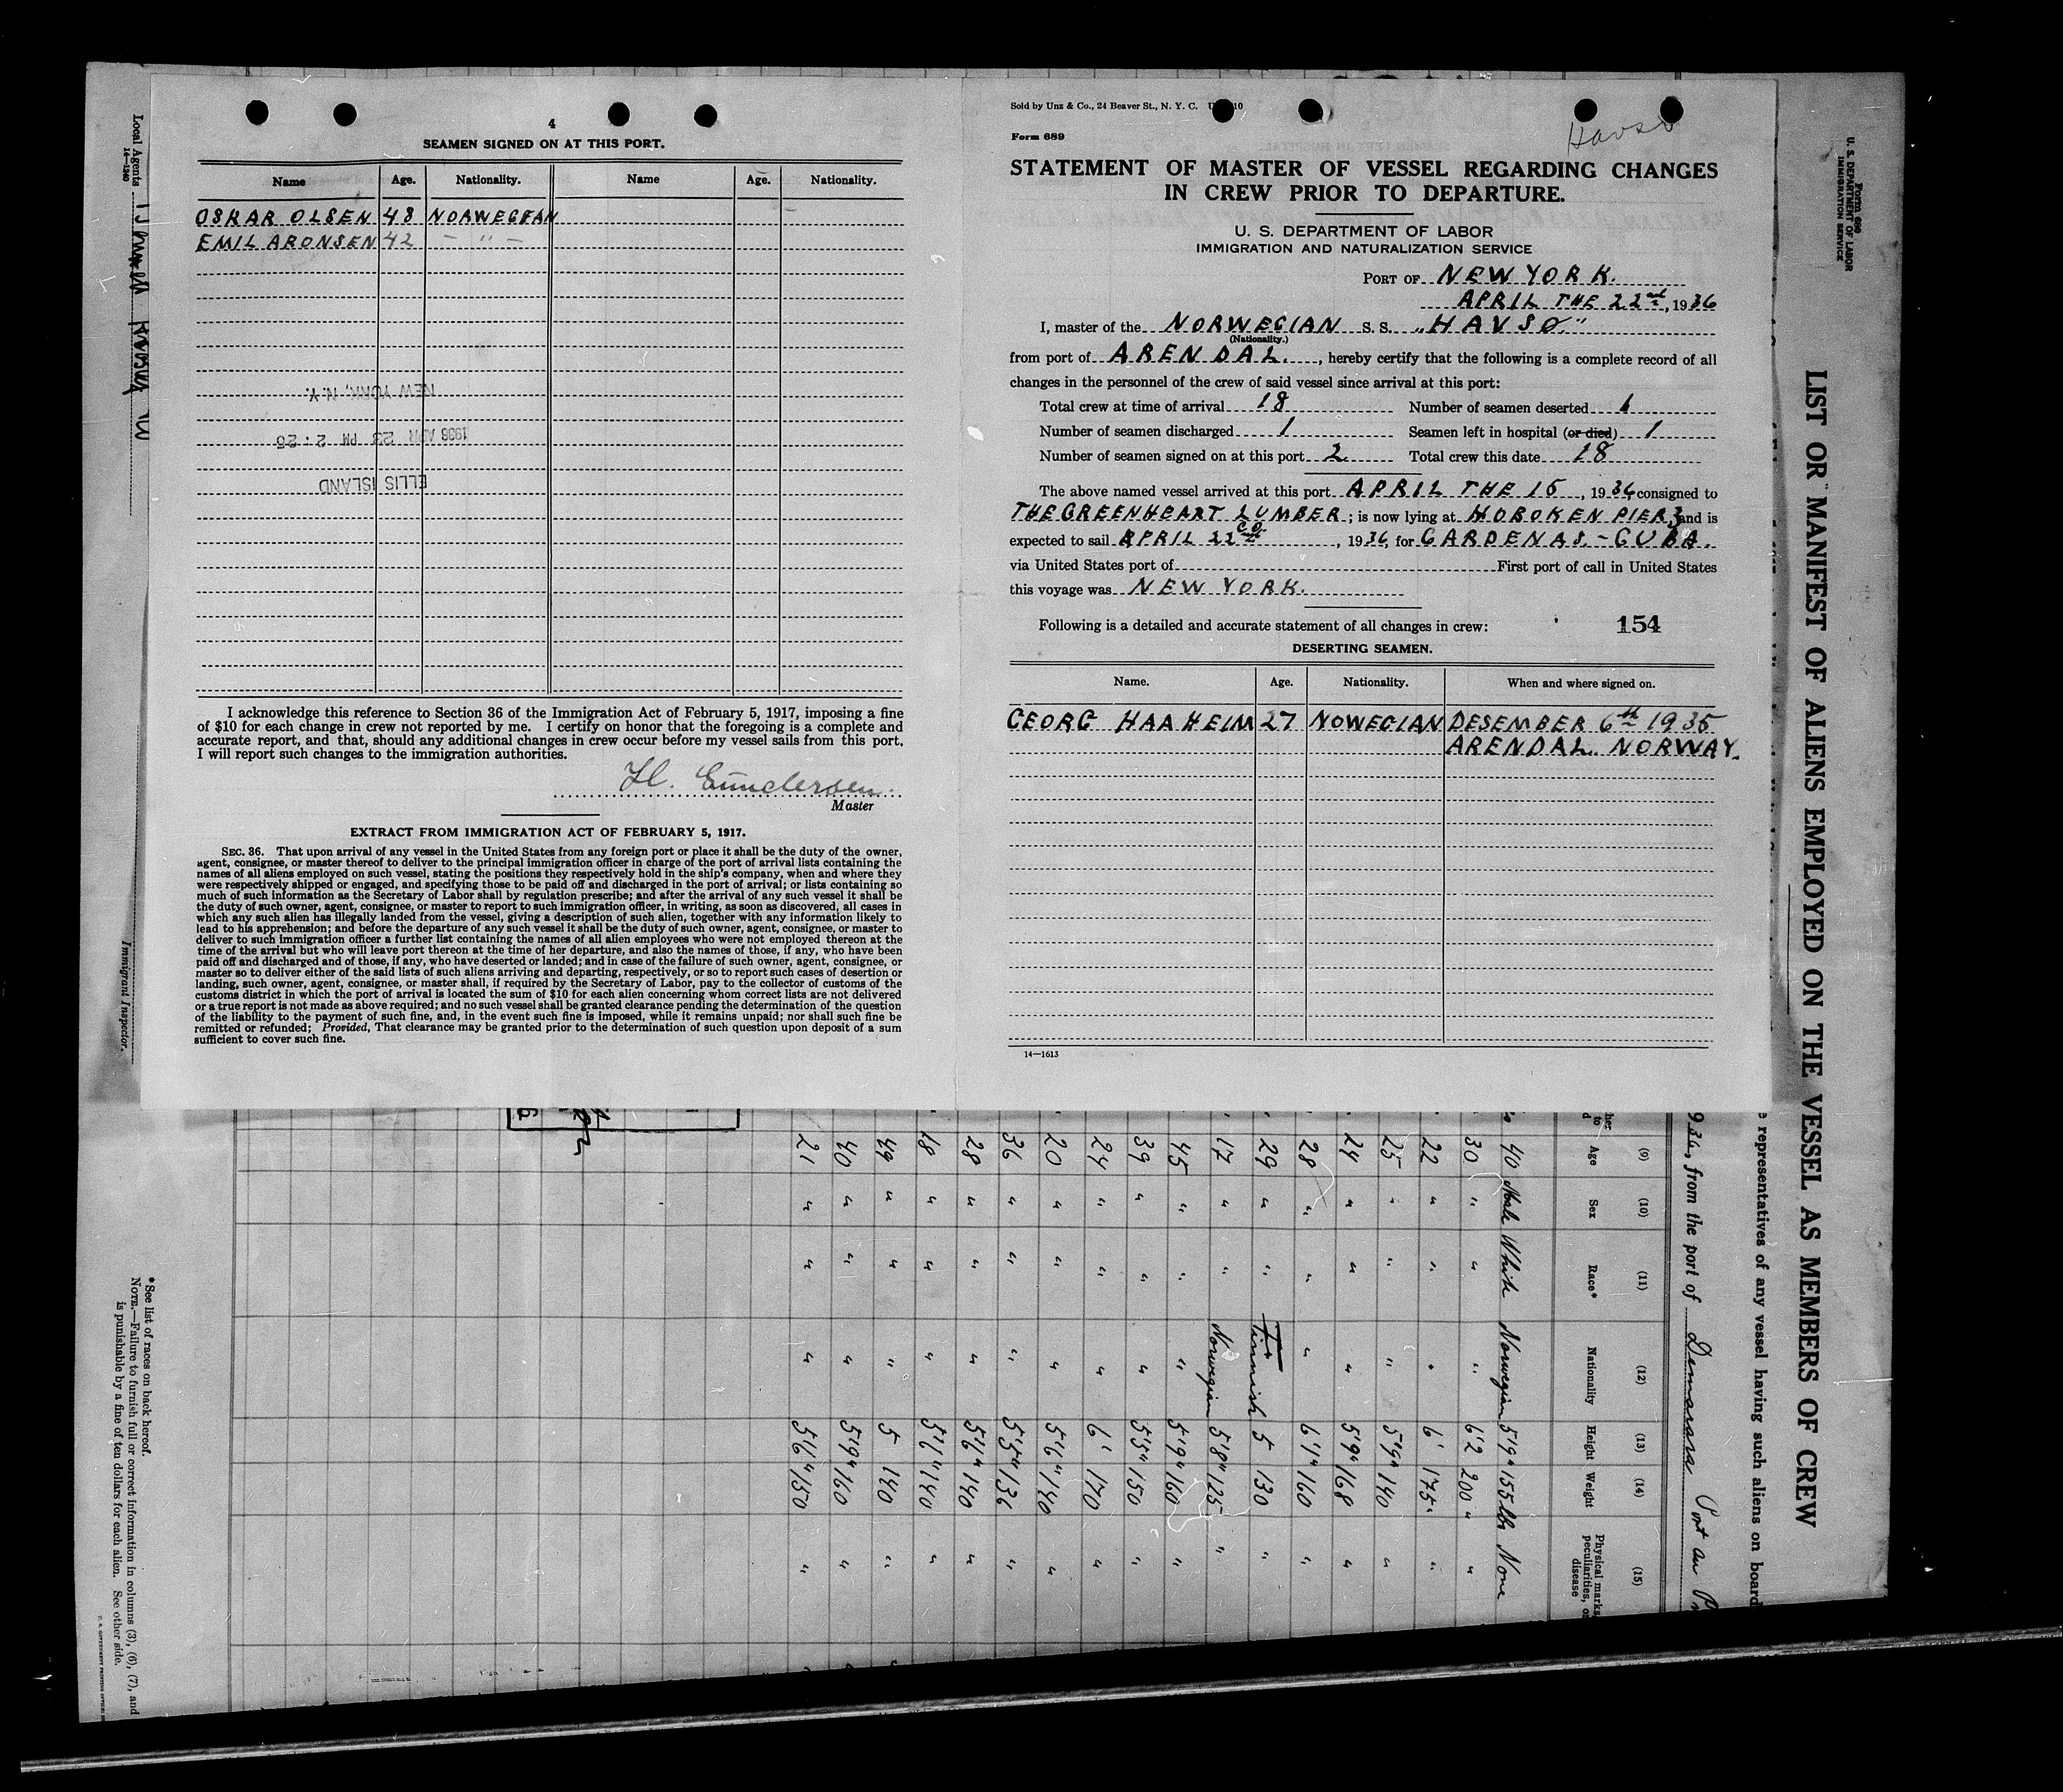 4
SEAMEN SIGNED ON AT THIS PORT.
Name Age. Nationality. Name Age. Nationality.
OSKAR OLSEN 48 NORWEGEAN
EMIL ARONSEN 42 - " -
NEW YORK, N.Y.
1936 APR 23 PM 2:26
ELLIS ISLAND
I acknowledge this reference to Section 36 of the Immigration Act of February 5, 1917, imposing a fine
of $10 for each change in crew not reported by me. I certify on honor that the foregoing is a complete and
accurate report, and that, should any additional changes in crew occur before my vessel sails from this port,
I will report such changes to the immigration authorities.
H. Gundersen
Master
EXTRACT FROM IMMIGRATION ACT OF FEBRUARY 5, 1917.
SEC. 36. That upon arrival of any vessel in the United States from any foreign port or place it shall be the duty of the owner,
agent, consignee, or master thereof to deliver to the principal immigration officer in charge of the port of arrival lists containing the
names of all aliens employed on such vessel, stating the positions they respectively hold in the ship's company, when and where they
were respectively shipped or engaged, and specifying those to be paid off and discharged in the port of arrival; or lists containing so
much of such information as the Secretary of Labor shall by regulation prescribe; and after the arrival of any such vessel it shall be
the duty of such owner, agent, consignee, or master to report to such immigration officer, in writing, as soon as discovered, all cases in
which any such alien has illegally landed from the vessel, giving a description of such alien, together with any information likely to
lead to his apprehension; and before the departure of any such vessel it shall be the duty of such owner, agent, consignee, or master to
deliver to such immigration officer a further list containing the names of all alien employees who were not employed thereon at the
time of the arrival but who will leave port thereon at the time of her departure, and also the names of those, if any, who have been
paid off and discharged and of those, if any, who have deserted or landed; and in case of the failure of such owner, agent, consignee, or
master so to deliver either of the said lists of such aliens arriving and departing, respectively, or so to report such cases of desertion or
landing, such owner, agent, consignee, or master shall, if required by the Secretary of Labor, pay to the collector of customs of the
customs district in which the port of arrival is located the sum of $10 for each alien concerning whom correct lists are not delivered
or a true report is not made as above required; and no such vessel shall be granted clearance pending the determination of the question
of the liability to the payment of such fine, and, in the event such fine is imposed, while it remains unpaid; nor shall such fine be
remitted or refunded; Provided, That clearance may be granted prior to the determination of such question upon deposit of a sum
sufficient to cover such fine.
Sold by Unz & Co., 24 Beaver St., N. Y. C.
Havsø
Form 689
STATEMENT OF MASTER OF VESSEL REGARDING CHANGES
IN CREW PRIOR TO DEPARTURE.
U. S. DEPARTMENT OF LABOR
IMMIGRATION AND NATURALIZATION SERVICE
PORT OF NEW YORK.
APRIL THE 22nd, 1936
I, master of the NORWEGIAN S. S. "HAVSØ"
(Nationality.)
from port of ARENDAL, hereby certify that the following is a complete record of all
changes in the personnel of the crew of said vessel since arrival at this port:
Total crew at time of arrival 18 Number of seamen deserted 1
Number of seamen discharged 1 Seamen left in hospital (or died) 1
Number of seamen signed on at this port 2 Total crew this date 18
The above named vessel arrived at this port APRIL THE 15, 1936, consigned to
THE GREENHEART LUMBER CO.; is now lying at HOBOKEN PIER 3 and is
expected to sail APRIL 22nd, 1936, for CARDENAS - CUBA.
via United States port of First port of call in United States
this voyage was NEW YORK.
Following is a detailed and accurate statement of all changes in crew: 154
DESERTING SEAMEN.
Name. Age. Nationality. When and where signed on.
GEORG HAAHEIM 27 NOWEGIAN DESEMBER 6th 1935
ARENDAL. NORWAY.
14—1613
Form 680
U. S. DEPARTMENT OF LABOR
IMMIGRATION SERVICE
LIST OR MANIFEST OF ALIENS EMPLOYED ON THE VESSEL AS MEMBERS OF CREW
representatives of any vessel having such aliens on board
936, from the port of Demarara Port au
(9) (10) (11) (12) (13) (14) (15)
Age Sex Race* Nationality Height Weight Physical marks, peculiarities, or disease
40 Male White Norwegian 5'9" 155 lbs None
30 " " " 6'2 200 " "
22 " " " 6' 175 " "
25 " " " 5'9" 140 "
24 " " " 5'9" 168 "
28 " " " 6'1" 160 "
29 " " Finnish 5 130 "
17 " " Norwegian 5'8" 125 "
45 " " " 5'9" 160 "
39 " " " 5'5" 150 "
24 " " " 6' 170 "
20 " " " 5'6" 140 "
36 " " " 5'5" 136 "
28 " " " 5'6" 140 "
18 " " " 5'6" 140 "
49 " " " 5 140 "
40 " " " 5'9" 160 "
21 " " " 5'6" 150 "
Local Agents
14—1240
Immigrant Inspector.
*See list of races on back hereof.
NOTE.—Failure to furnish full or correct information in columns (3), (6), (7), and
is punishable by a fine of ten dollars for each alien. See other side.